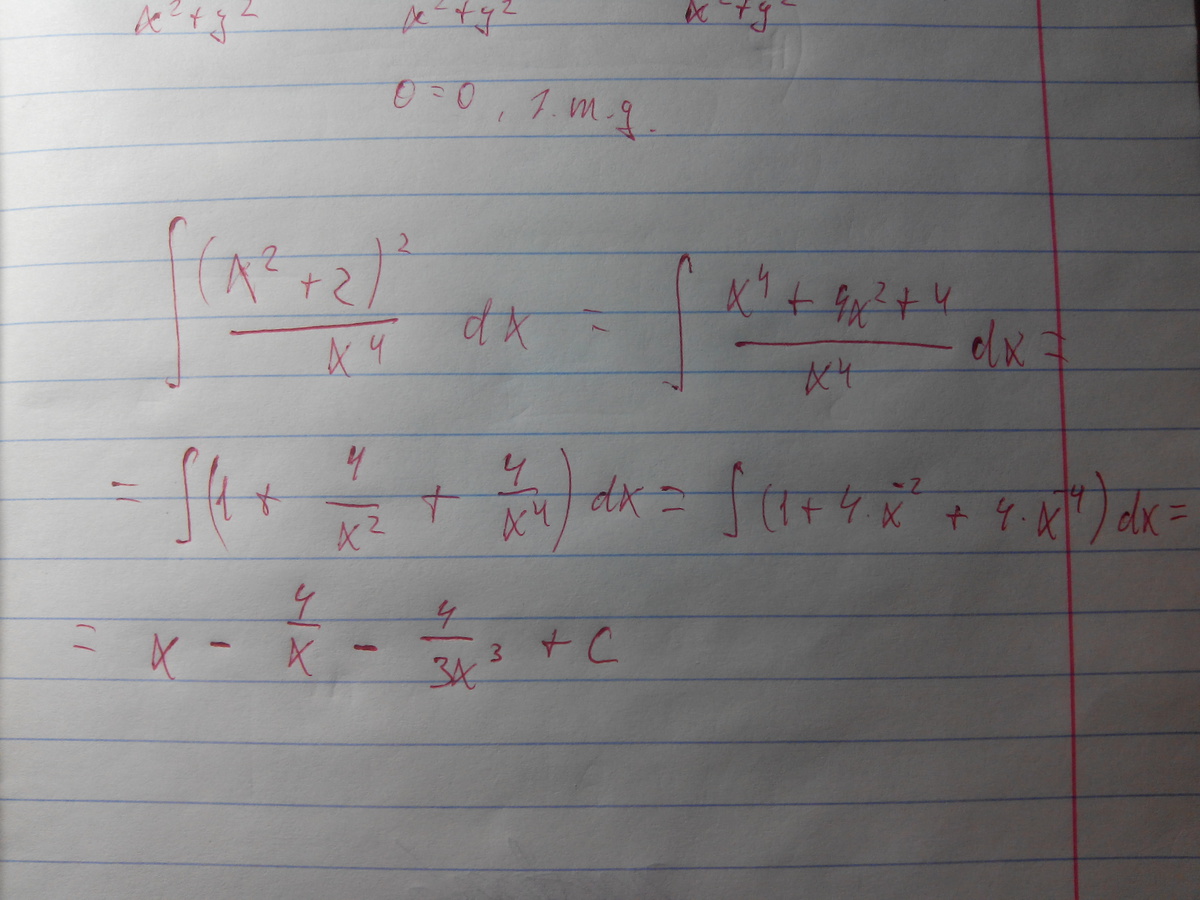 x²+y² x²+y² x²+y²
0=0, ч.т.д.
∫ (x²+2)²/x⁴ dx = ∫ (x⁴+4x²+4)/x⁴ dx =
= ∫(1 + 4/x² + 4/x⁴) dx = ∫(1+4·x⁻² + 4·x⁻⁴) dx =
= x - 4/x - 4/(3x³) + C